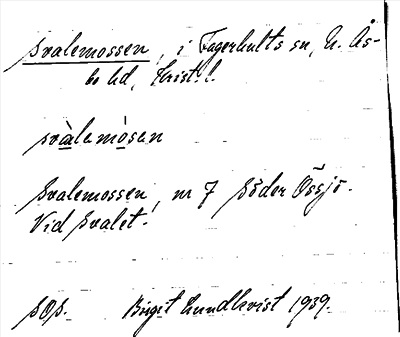 Svalemossen, i Fagerhults sn, N. Ås-
bo hd, Krist. l.
svàlemósen
Svalemossen, nr 7 Söder Össjö.
Vid Svalet.
SOS. Birgit Lundkvist 1939.